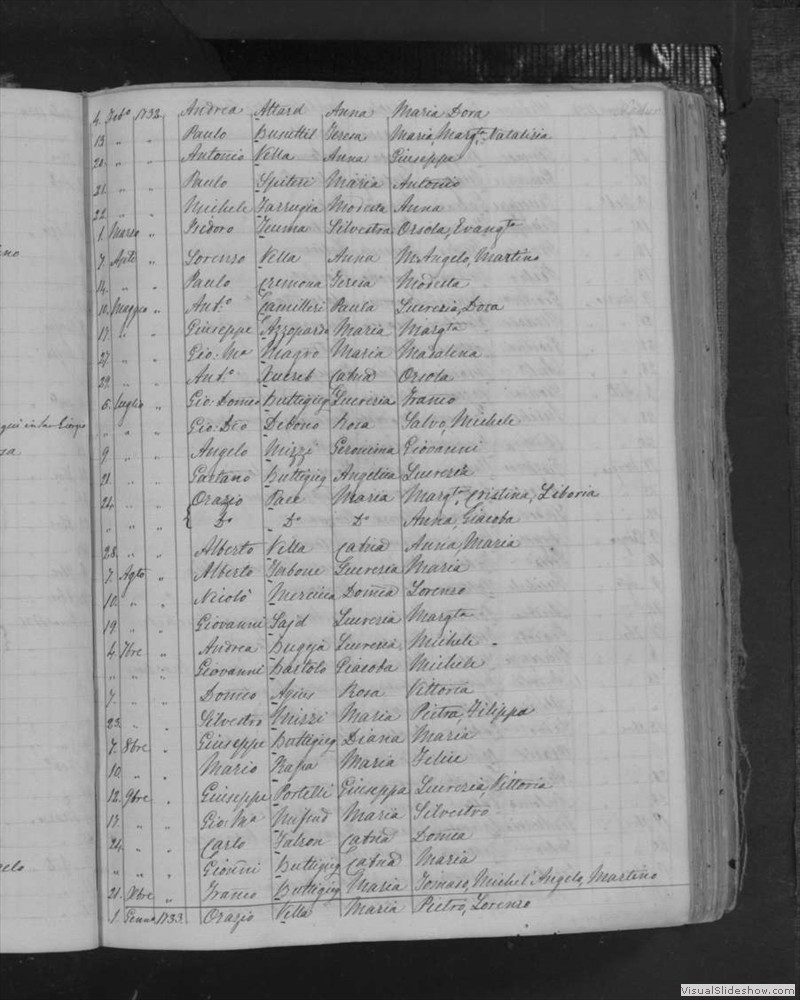 ino
qui in la Cirgo
sa
elo
4. Feb.º 1732 Andrea Attard Anna Maria Dora
13 " " Paulo Busuttil Teresa Maria, Marg.ta Natalizia
20. " " Antonio Vella Anna Giuseppe
21. " " Paulo Spiteri Maria Antonio
22. " " Michele Farrugia Modesta Anna
1. Marzo " Isidoro Zumma Silvestra Orsola, Evang.ta
7. Aple " Lorenzo Vella Anna M. Angelo, Martino
14. " " Paulo Cremona Teresa Modesta
10. Maggio " Ant.º Camilleri Paula Lucrezia, Dora
17. " " Giuseppe Azzopardo Maria Marg.ta
27. " " Gio: Ma Magro Maria Madalena
29. " " Ant.º Xuereb Catnā Orsola
5. Luglio " Gio: Domco Buttigieg Lucrezia Franco
" " " Gio: Dio Debono Rosa Salvo, Michele
9 " " Angelo Mizzi Geronima Giovanni
21. " " Gaetano Buttigieg Angelica Lucrezia
24 " " Orazio Pace Maria Marg.ta Cristina, Liboria
" " " Dº Dº Dº Anna, Giacoba
28. " " Alberto Vella Catnā Anna, Maria
7. Agto " Alberto Zabone Lucrezia Maria
10. " " Nicolò Mercieca Domca Lorenzo
19 " " Giovanni Sajd Lucrezia Marg.ta
4 7bre " Andrea Bugeja Lucrezia Michele
" " " Giovanni Bartolo Giacoba Michele
7. " " Domco Agius Rosa Vittoria
23. " " Silvestro Mizzi Maria Pietra, Filippa
7. 8bre " Giuseppe Buttigieg Diana Maria
10. " " Mario Rapa Maria Felice
12. 9bre " Giuseppe Portelli Giuseppa Lucrezia, Vittoria
17. " " Gio: Ma Mifsud Maria Silvestro
24. " " Carlo Falzon Catnā Domca
" " " Gioñni Buttigieg Catnā Maria
21. Xbre " Franco Buttigieg Maria Tomaso, Michel'Angelo, Martino
1. Genna 1733 Orazio Vella Maria Pietro, Lorenzo
VisualSlideshow.com